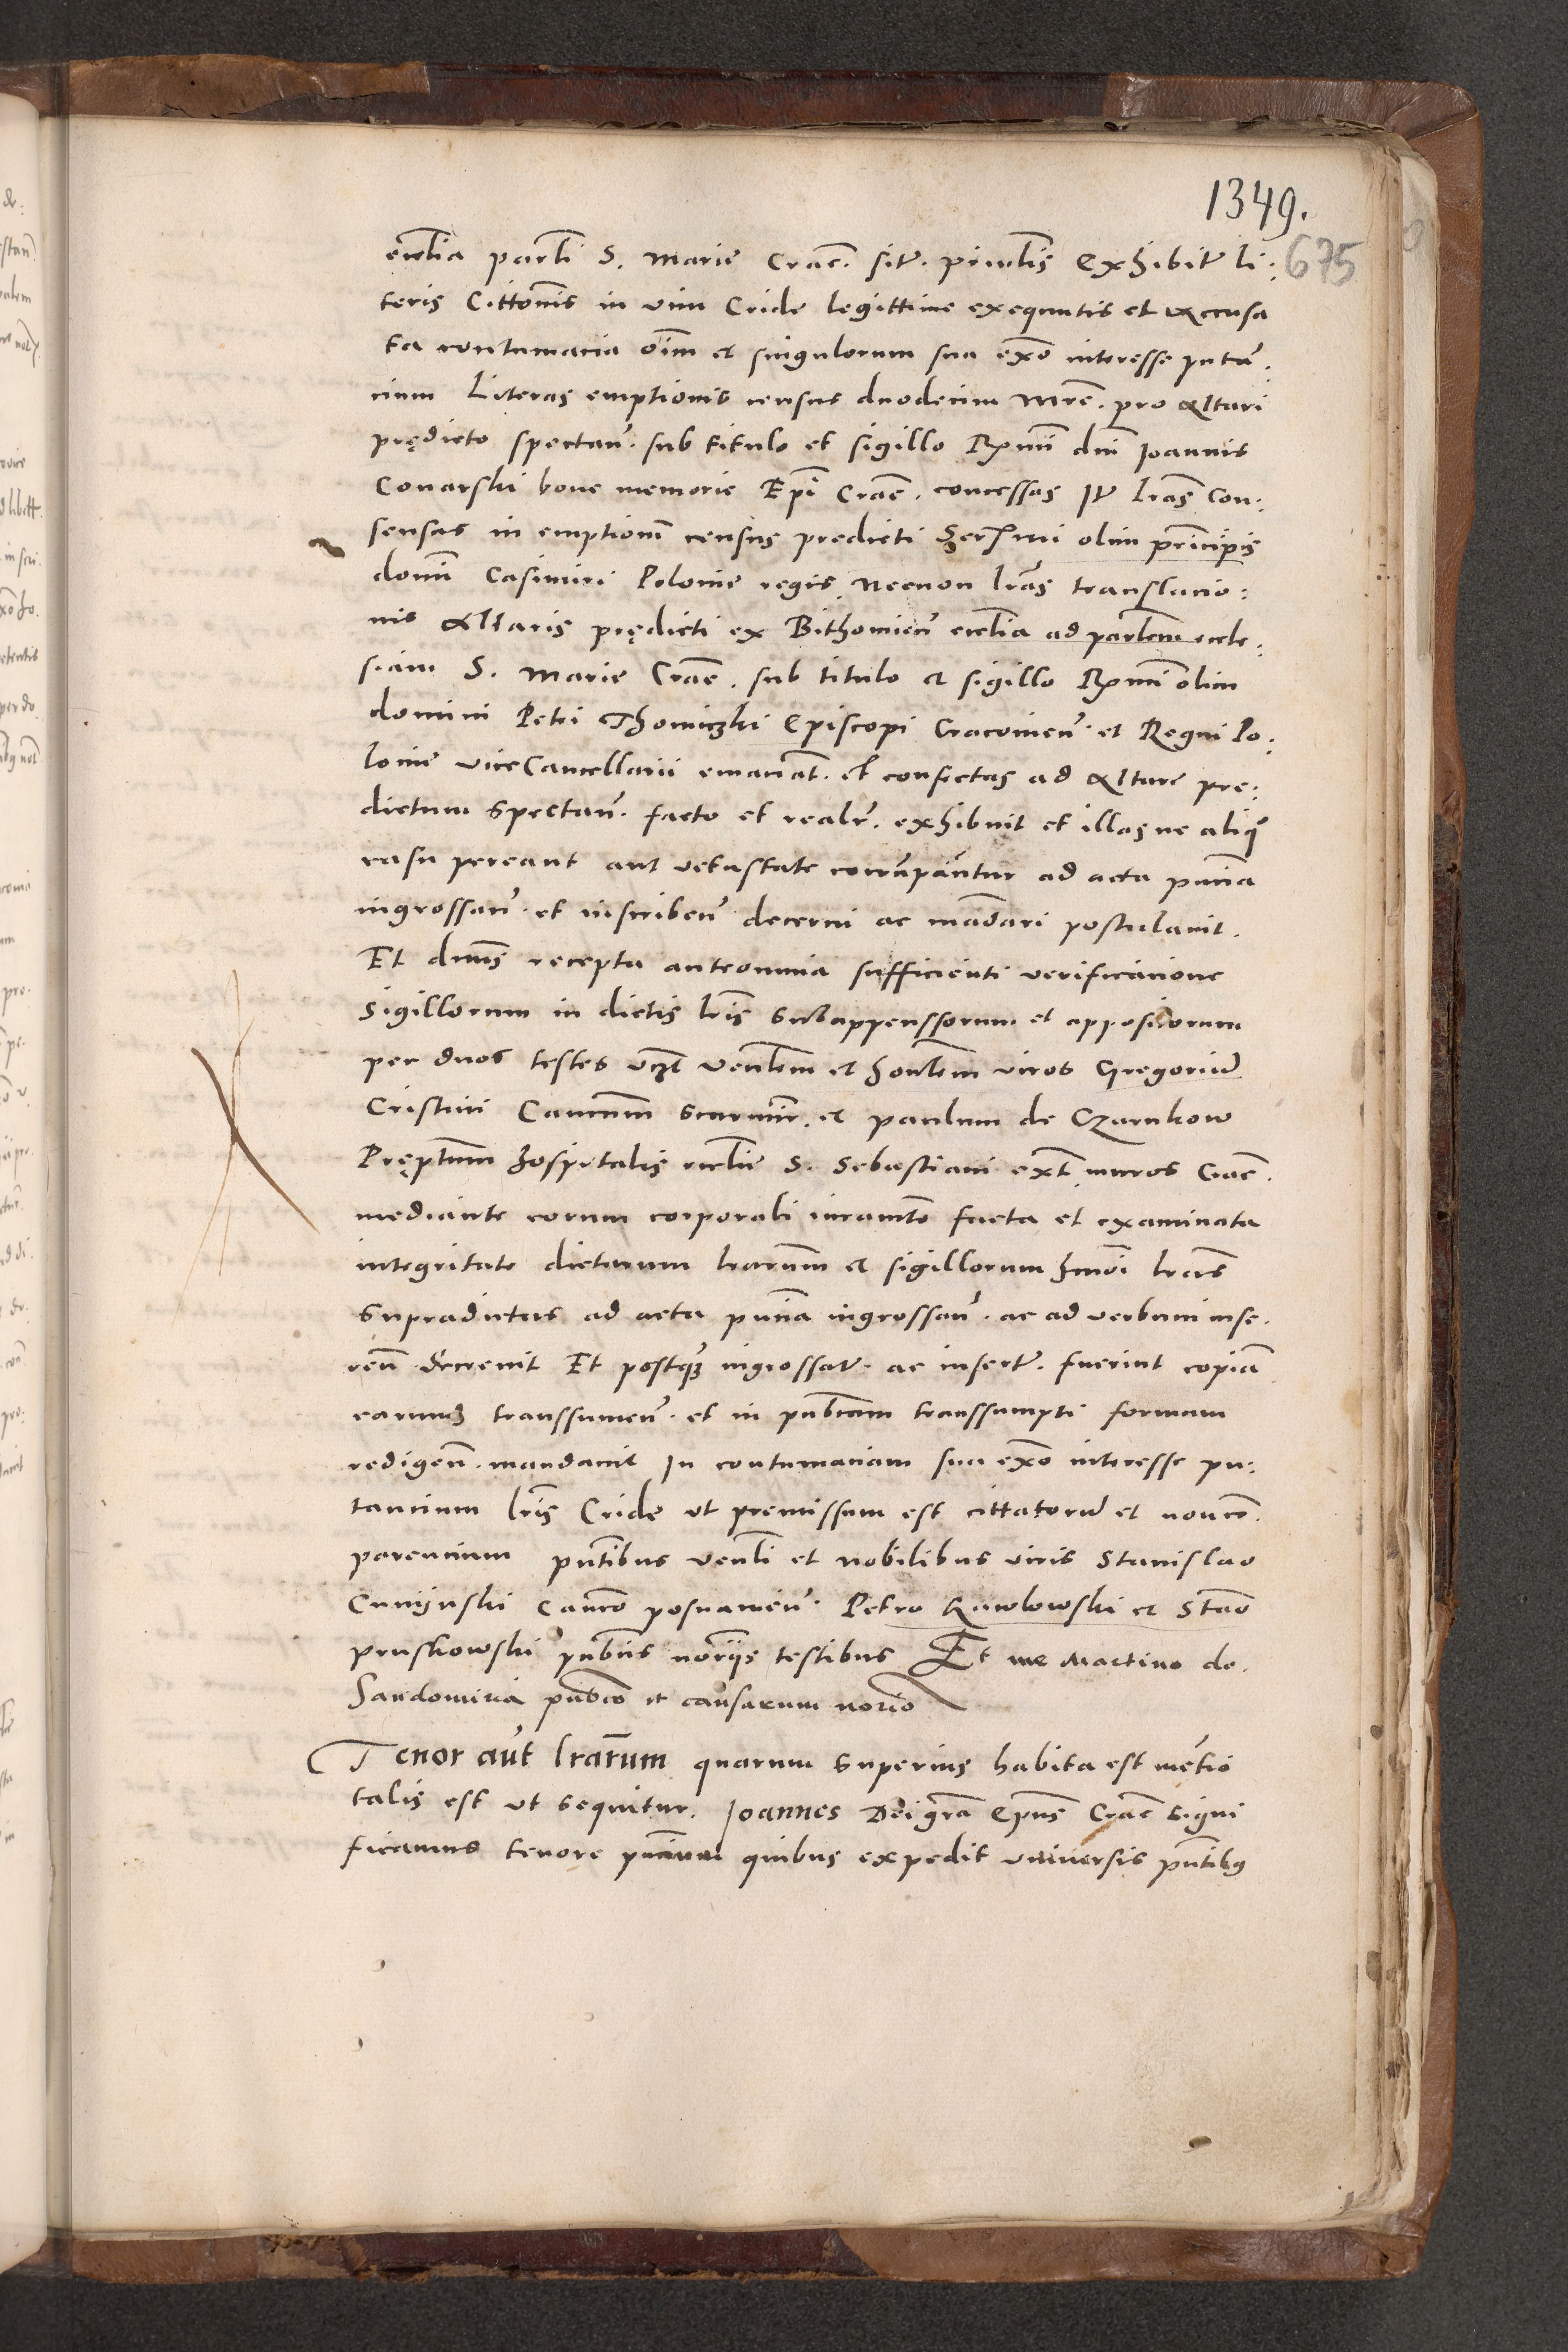 1349.
675
ecclia parli S. Marie Crac. site. primlis Exhibite li:
teris Cittonis in vim Cride legittime exequutis et accusa
ta contumacia oim et singulorum sua exo interesse putan.
cium Literas emptionis census duodecim Mrc. pro Altari
prędicto spectan. sub titulo et sigillo Rmi dni Joannis
Conarski bone memorie Epi Crac. concessas It lras Con:
sensus in emptionem census predicti Sermi olim principis
domi Casimiri Polonie regis, Necnon lras translacio:
nis Altaris prędicti ex Bithomien ecclia ad parlem eccle:
siam S. Marie Crac. sub titulo et sigillo Rmi olim
domini Petri Thomiczki Episcopi Cracovien. et Regni Po:
lonie viceCancellarii emanat. et confectas ad Altare pre:
dictum Spectan. facto et realr. exhibuit et illas ne aliq
casu pereant aut vetustate corrumpantur ad acta pncia
ingrossan. et inscriben decerni ac madari postulavit.
Et dnus recepta anteomnia sufficienti verificacione
Sigillorum in dictis lris Subappenssorum et appositorum
per duos testes vczt venlem et honlem viros Gregoriu
Cristini Canonicum Scarmir. et paulum de Czarnkow
Pręptum hospitalis ecclie S. Sebastiani ext muros Crac.
mediante eorum corporali iuramto facta et examinata
integritate dictarum lrarum et sigillorum hmoi lras
Supradictas ad acta pncia ingrossan. ac ad verbum inse.
ren decrevit Et postq ingrossate. ac inserte. fuerint copia
earumq transsumen. et in publicam transsumpti formam
redigen. mandavit In contumaciam sua exo interesse pu:
tancium lris Cride ut premissum est cittatoru et non co.
parencium pntibus venli et nobilibus viris Stanislao
Canco posnanien. Petro et Stao
pruskowski publis noriis testibus Et me Martino de.
Sandomiria pubco et causarum norio
Tenor aut lrarum quarum Superius habita est mentio
talis est ut sequitur. Joannes Dei gra Epus Crac Signi
ficamus tenore pncium quibus expedit universis pntibus